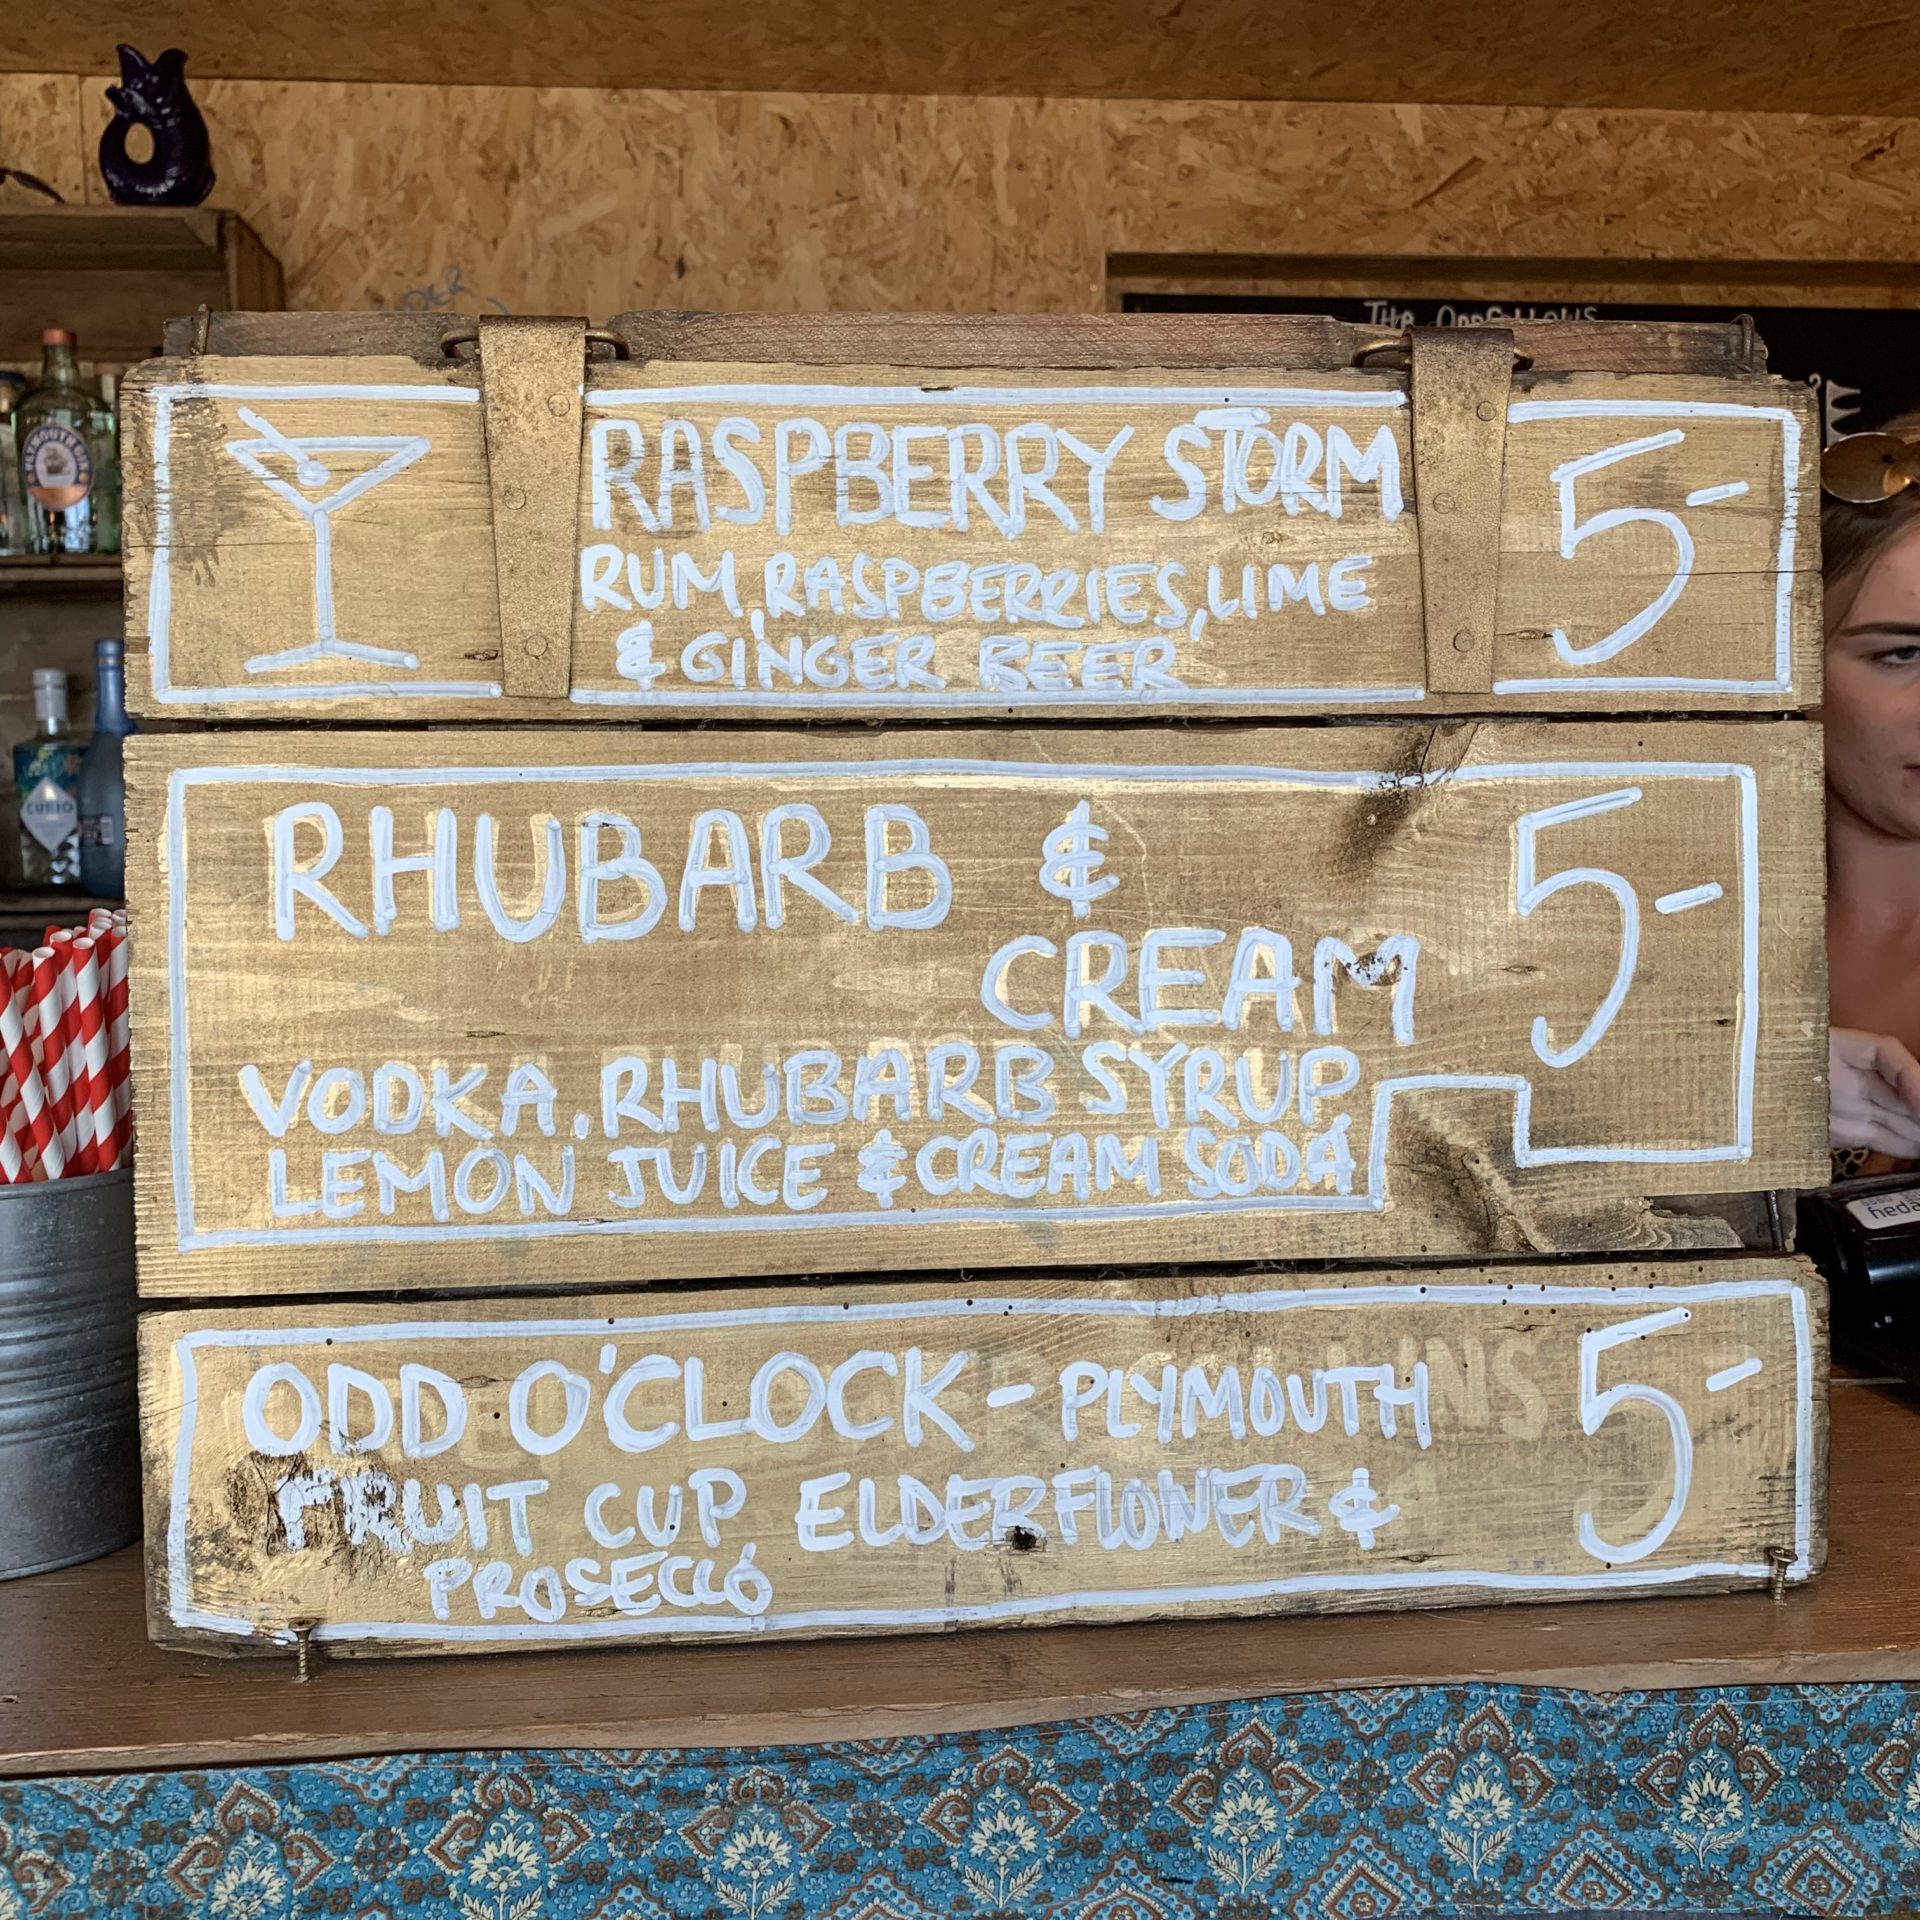 THE ODDFELLOWS
PLYMOUTH GIN
RASPBERRY STORM 5-
RUM, RASPBERRIES, LIME
& GINGER BEER
CUBIO
RHUBARB &
CREAM 5-
VODKA, RHUBARB SYRUP,
LEMON JUICE & CREAM SODA
ODD O'CLOCK - PLYMOUTH 5-
FRUIT CUP ELDERFLOWER &
PROSECCO